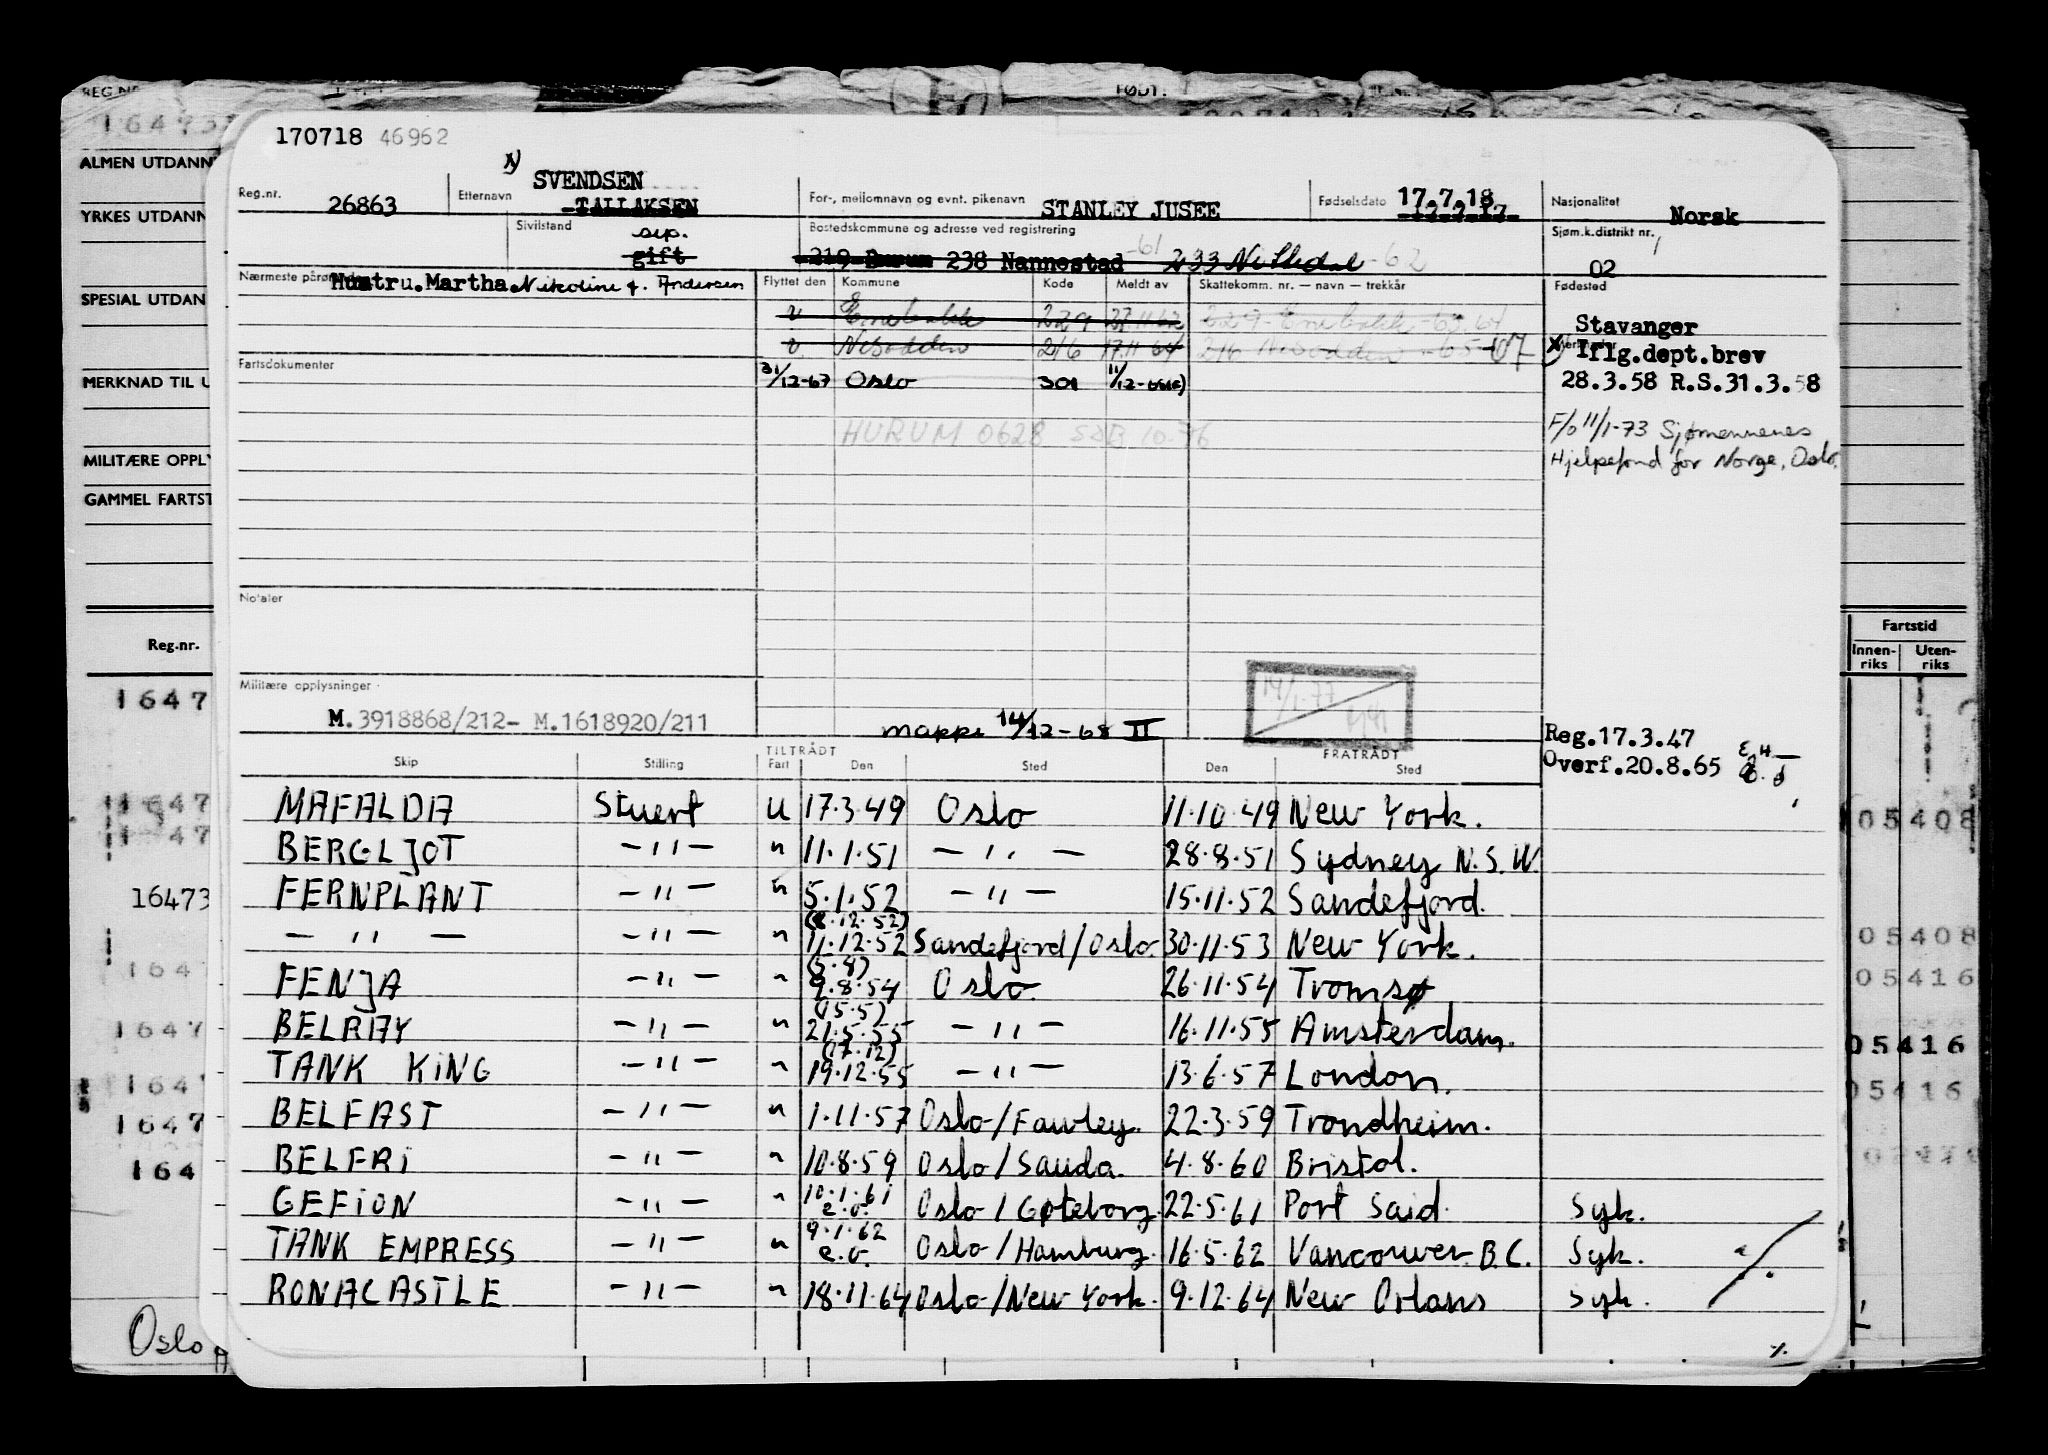 170718 46962
x) SVENDSEN
Reg.nr. 26863 Etternavn TALLAKSEN For-, mellomnavn og evnt. pikenavn STANLEY JUSEE Fødselsdato 17.7.18 Nasjonalitet Norsk
Sivilstand sep. gift Bostedskommune og adresse ved registrering Sjøm.k.distrikt nr.
238 Nannestad -61 233 Nittedal -62 02
Nærmeste pårørende Hustru.Martha Nikoline f. Andersen Flyttet den Kommune Kode Meldt av Skattekomm. nr. — navn — trekkår Fødested
Enebakk 229 229 Enebakk Stavanger
Nesodden 216 17.11 64 216 Nesodden -65-67 x) Iflg.dept.brev
Fartsdokumenter 31/12-67 Oslo 301 28.3.58 R.S.31.3.58
HURUM 0628 F/o 11/1-73 Sjømennenes
Hjelpefond for Norge, Oslo.
Notater
Militære opplysninger
M.3918868/212- M.1618920/211 mappe 14/12-68 II 14/1-77 Reg.17.3.47
Overf.20.8.65
Skip Stilling TILTRÅDT Fart Den Sted FRATRÅDT Den Sted
MAFALDA Stuert U 17.3.49 Oslo 11.10.49 New York.
BERGLJOT — " — " 11.1.51 — " — 28.8.51 Sydney N.S.W.
FERNPLANT — " — " 5.1.52 — " — 15.11.52 Sandefjord.
— " — — " — " (8.12.52) 11.12.52 Sandefjord/Oslo. 30.11.53 New York.
FENJA — " — " (5.8) 9.8.54 Oslo. 26.11.54 Tromsø
BELRAY — " — " (15.5) 21.5.55 — " — 16.11.55 Amsterdam.
TANK KING — " — " (17.12) 19.12.55 — " — 13.6.57 London.
BELFAST — " — " 1.11.57 Oslo/Fawley. 22.3.59 Trondheim.
BELFRI — " — " 10.8.59 Oslo/Sauda. 4.8.60 Bristol.
GEFION — " — " 10.1.61 e.o. Oslo/Gøteborg. 22.5.61 Port Said. Syk.
TANK EMPRESS — " — " 9.1.62 e.o. Oslo/Hamburg. 16.5.62 Vancouver B.C. Syk.
RONACASTLE — " — " 18.11.64 Oslo/New York. 9.12.64 New Orlans syk.
ALMEN UTDANN
YRKES UTDANN
SPESIAL UTDAN
MERKNAD TIL U
MILITÆRE OPPLY
GAMMEL FARTST
Reg.nr.
1647
1647
16473
1647
1647
1647
1647
164
Oslo
Fartstid
Innen-riks Uten-riks
05408
05408
05416
05416
05416